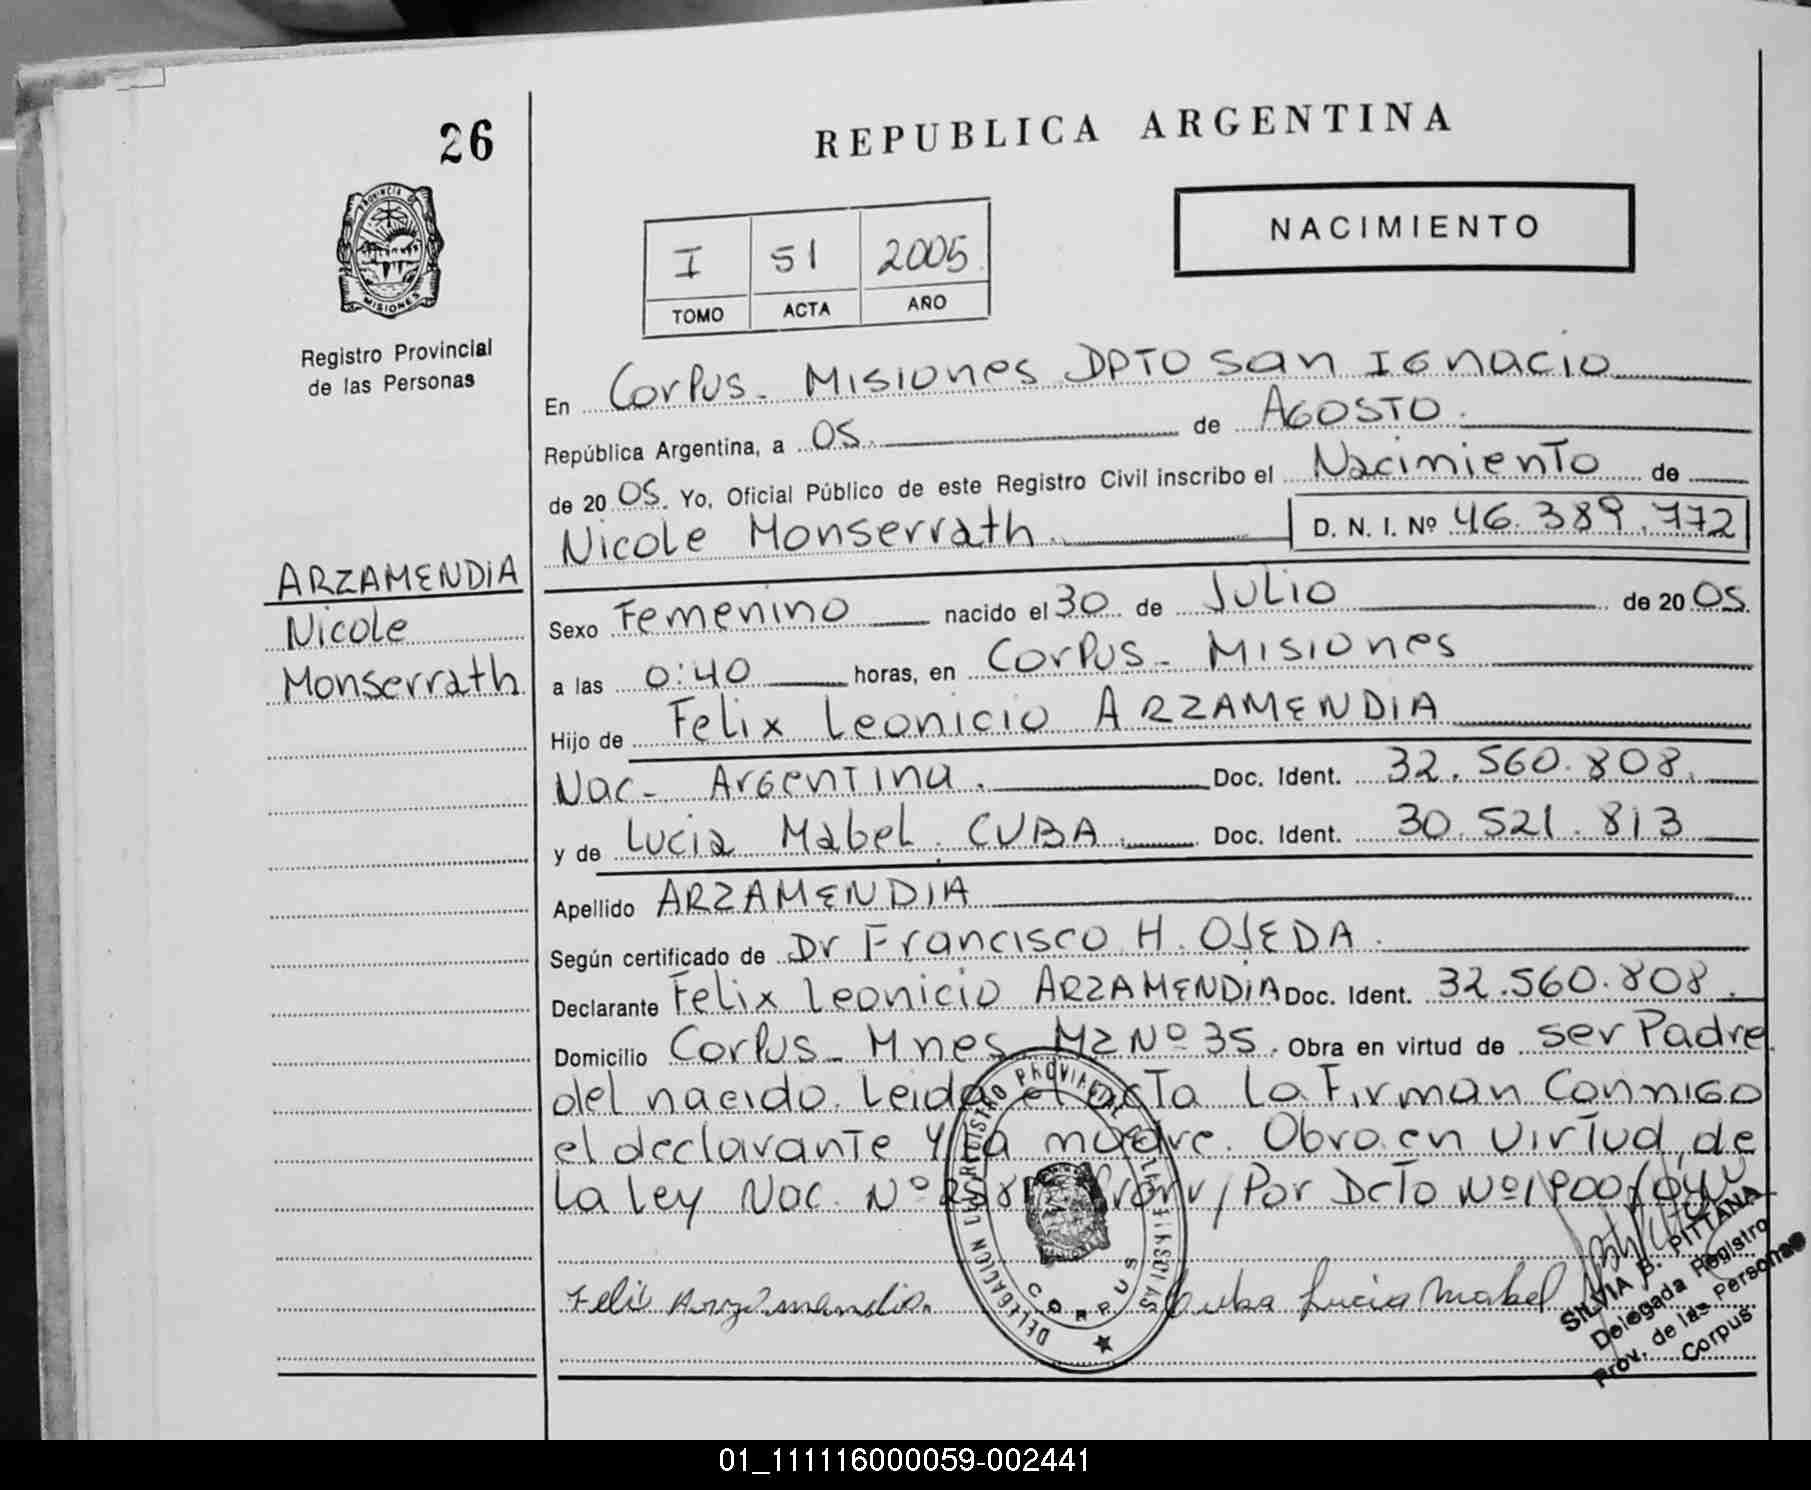 26
REPUBLICA ARGENTINA
PROVINCIA DE
MISIONES
Registro Provincial
de las Personas
NACIMIENTO
I 51 2005
TOMO ACTA AÑO
En Corpus - Misiones DPTO San Ignacio
República Argentina, a 05. de AGOSTO.
de 20 05. Yo, Oficial Público de este Registro Civil inscribo el Nacimiento de
Nicole Monserrath. D. N. I. Nº 46.389.772
ARZAMENDIA
Nicole
Monserrath
Sexo Femenino nacido el 30 de Julio de 20 05
a las 0:40 horas, en Corpus - Misiones
Hijo de Felix Leonicio ARZAMENDIA
Nac - Argentina. Doc. Ident. 32.560.808.
y de Lucia Mabel. CUBA. Doc. Ident. 30.521.813
Apellido ARZAMENDIA
Según certificado de Dr Francisco H. OJEDA.
Declarante Felix Leonicio ARZAMENDIA Doc. Ident. 32.560.808.
Domicilio Corpus - Mnes MZ Nº 35. Obra en virtud de ser Padre
del nacido. Leida el acta la Firman Conmigo
el declarante y la madre. Obro en Virtud de
la Ley Nac. Nº / Por Dcto Nº 1900/04
Felix Arzamendia. Cuba Lucia Mabel
DELEGACION DEL REGISTRO PROVINCIAL DE LAS PERSONAS
CORPUS
SILVIA B. PITTANA
Delegada Registro
Prov. de las Personas
Corpus
01_111116000059-002441